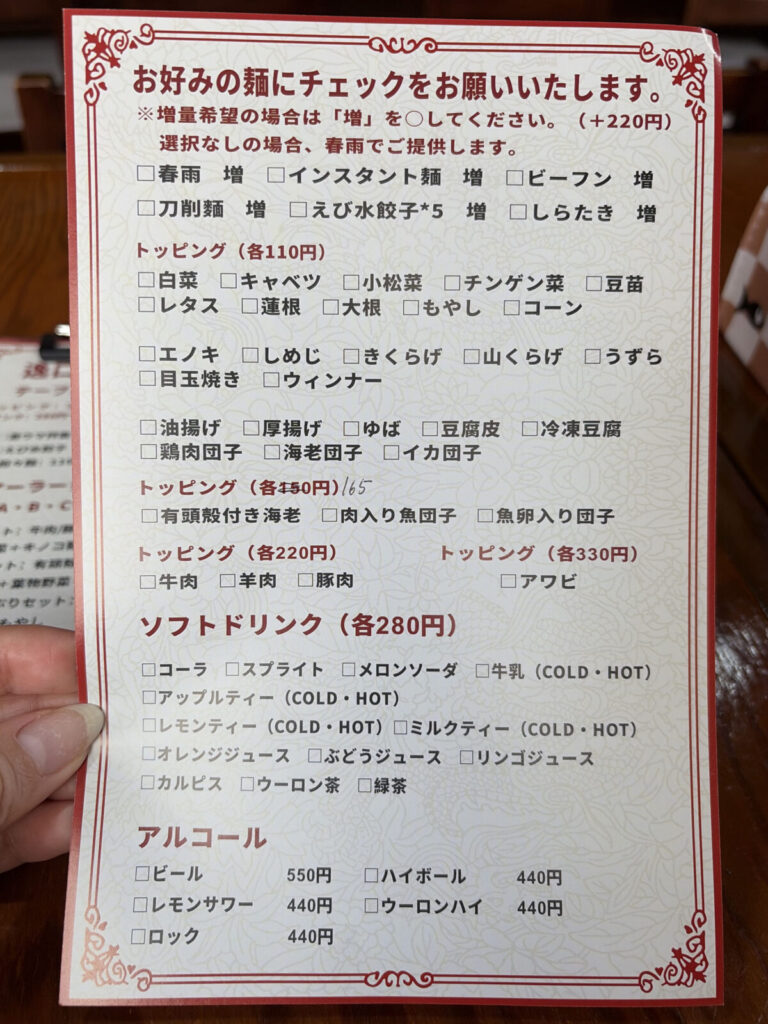 お好みの麺にチェックをお願いいたします。
※増量希望の場合は「増」を○してください。（＋220円）
選択なしの場合、春雨でご提供します。
□春雨 増 □インスタント麺 増 □ビーフン 増
□刀削麺 増 □えび水餃子*5 増 □しらたき 増
トッピング（各110円）
□白菜 □キャベツ □小松菜 □チンゲン菜 □豆苗
□レタス □蓮根 □大根 □もやし □コーン
□エノキ □しめじ □きくらげ □山くらげ □うずら
□目玉焼き □ウィンナー
□油揚げ □厚揚げ □ゆば □豆腐皮 □冷凍豆腐
□鶏肉団子 □海老団子 □イカ団子
トッピング（各150円）165
□有頭殻付き海老 □肉入り魚団子 □魚卵入り団子
トッピング（各220円） トッピング（各330円）
□牛肉 □羊肉 □豚肉 □アワビ
ソフトドリンク（各280円）
□コーラ □スプライト □メロンソーダ □牛乳（COLD・HOT）
□アップルティー（COLD・HOT）
□レモンティー（COLD・HOT）□ミルクティー（COLD・HOT）
□オレンジジュース □ぶどうジュース □リンゴジュース
□カルピス □ウーロン茶 □緑茶
アルコール
□ビール 550円 □ハイボール 440円
□レモンサワー 440円 □ウーロンハイ 440円
□ロック 440円